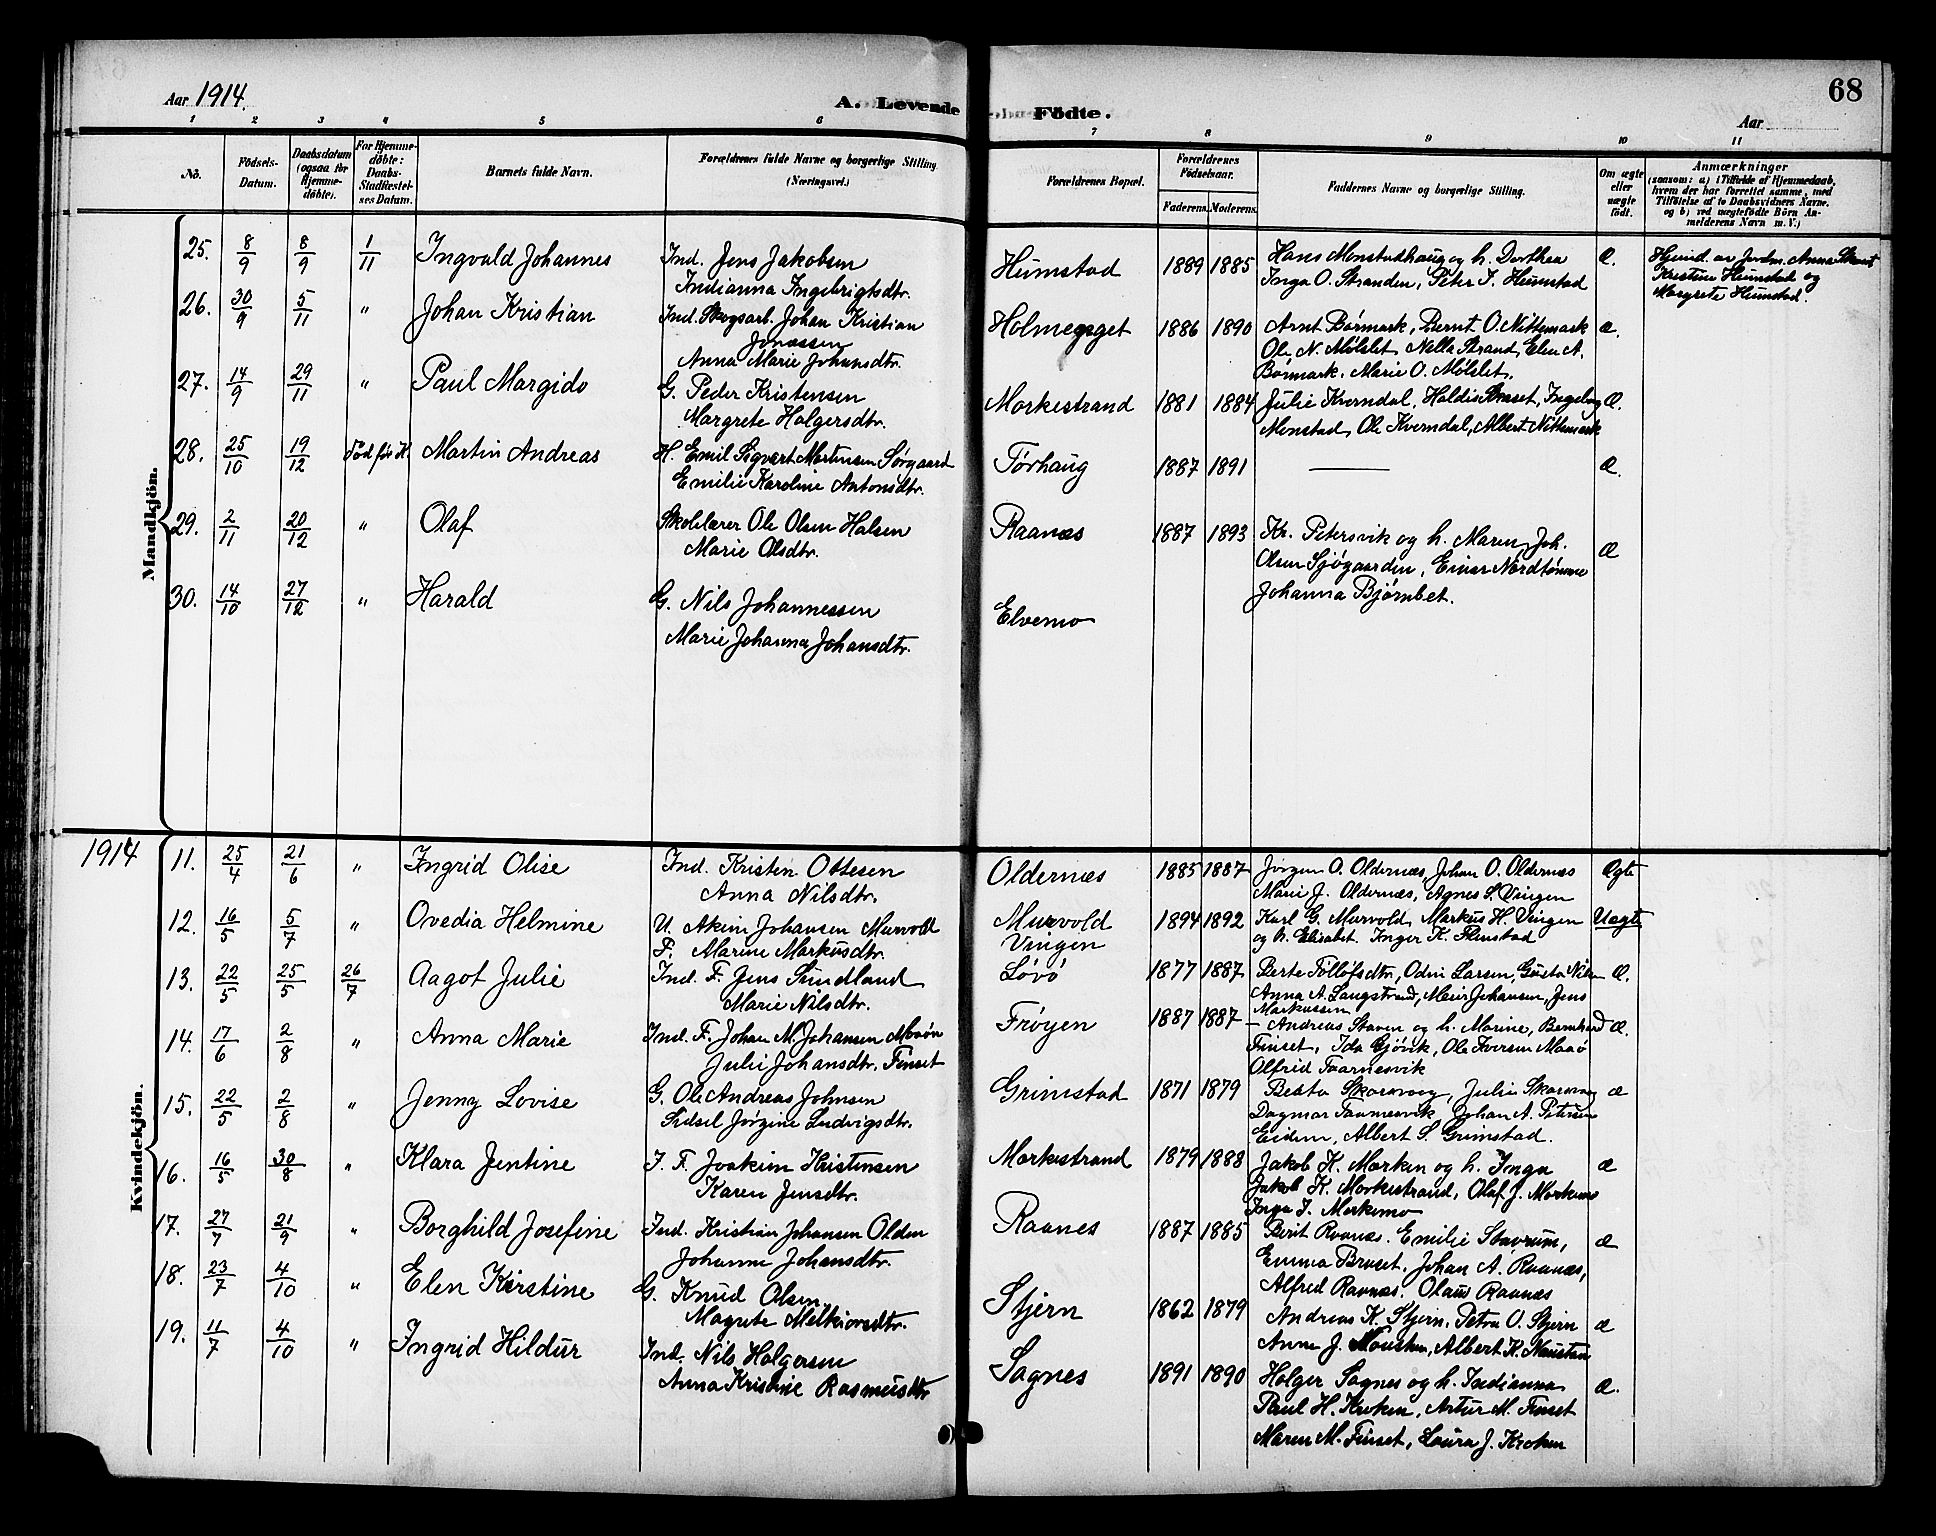 Aar 1914.
A. Levende Födte.
68
Aar
1 2 3 4 5 6 7 8 9 10 11
No.
Födsels-Datum.
Daabsdatum (ogsaa for Hjemmedöbte).
For Hjemmedöbte: Daabs-Stadfæstelses Datum.
Barnets fulde Navn.
Forældrenes fulde Navne og borgerlige Stilling. (Næringsvei.)
Forældrenes Bopæl.
Forældrenes Födselsaar.
Faderens. Moderens.
Faddernes Navne og borgerlige Stilling.
Om ægte eller uægte födt.
Anmærkninger
(saasom: a) i Tilfælde af Hjemmedaab, hvem der har forrettet samme, med Tilföielse af to Daabsvidners Navne, og b) ved uægtefödte Börn Anmelderens Navn m. V.)
Mandkjön.
25. 8/9 8/9 1/11 Ingvald Johannes Ind. Jens Jakobsen Humstad 1889 1885 Hans Monstadhaug og h. Dorthea Æ. Hjemd. av Jordm. Anna
Indianna Ingebrigtsdtr. Inga O. Stranden, Peter J. Humstad Kristine Humstad og
Margrete Humstad.
26. 30/9 5/11 " Johan Kristian Ind. Skogsarb. Johan Kristian Holmegaget 1886 1890 Arnt Børmark, Bernt O. Nittemark Æ.
Jonassen Ole N. Mølslet, Nella Strand, Elen A.
Anna Marie Johansdtr. Børmark. Marie O. Mølslet.
27. 14/9 29/11 " Paul Margido G. Peder Kristensen Morkestrand 1881 1884 Julie Kverndal, Haldis Braset, Ingeborg Æ.
Margrete Holgersdtr. Monstad, Ole Kverndal, Albert Nittemark
28. 25/10 19/12 Född før H. Martin Andreas H. Emil Sigvart Mortensen Sørgaard Tørhaug 1887 1891 — Æ.
Emilie Karoline Antonsdtr.
29. 2/11 20/12 " Olaf Skolelærer Ole Olsen Halsen Raanæs 1887 1893 Kr. Petersvik og h. Maren, Joh. Æ
Marie Olsdtr. Olsen Sjøgaarden, Einar Nordtømme
Johanna Bjørnbet.
30. 14/10 27/12 " Harald G. Nils Johannessen Elvemo
Marie Johanna Johansdtr.
1914
Kvindekjön.
11. 25/4 21/6 " Ingrid Olise Ind. Kristen Ottesen Oldernæs 1885 1887 Jørgen O. Oldernæs, Johan O. Oldernæs Ægte
Anna Nilsdtr. Marie J. Oldernæs, Agnes S. Vingen
12. 16/5 5/7 " Ovedia Helmine U. Akim Johansen Murvold Murvold 1894 1892 Karl G. Murvold, Markus H. Vingen Uægte
P. Marine Markusdtr. Vingen og h. Elisabet. Inger K. Flenstad
13. 22/5 25/5 26/7 Aagot Julie Ind. F. Jens Sundland Løvö 1877 1887 Berte Tollofsdtr, Odin Larsen, Gusta Nilsen Æ.
Marie Nilsdtr. Anna A. Langstrand, Marie Johansen, Jens
Markussen
14. 17/6 2/8 " Anna Marie Ind. F. Johan M. Johansen Maaøn Frøyen 1887 1887 - Andreas Staven og h. Marine, Bernhard Æ.
Julie Johansdtr. Finset Finset, Ida Gjøvik, Ole Iversen Maaö
Alfrid Taarnesvik
15. 22/5 2/8 " Jenny Lovise G. Ole Andreas Johnsen Grimstad 1871 1879 Beata Skarsvaag, Julie Skarsvaag Æ
Sidsel Jørgine Ludvigsdtr. Dagmar Taarnesvik, Johan A. Petersen
Eidem, Albert S. Grimstad.
16. 16/5 30/8 " Klara Jentine I. F. Joakim Kristensen Morkestrand 1879 1888 Jakob K. Morken og h. Inga Æ
Karen Jensdtr. Jakob K. Morkestrand, Olaf J. Morkemo
Inga J. Morkemo
17. 27/7 21/9 " Borghild Josefine Ind. Kristian Johansen Olden Raanes 1887 1885 Berit Raanæs. Emilie Stavrum, Æ
Johanne Johansdtr. Emma Braset, Johan A. Raanæs,
Alfred Raanæs. Olaus Raanæs
18. 23/7 4/10 " Elen Kirstine G. Knud Olsen. Stjern 1862 1879 Andreas K. Stjern. Petra O. Stjern Æ
Magrete Melkiorsdtr. Anne J. Nausten, Albert K. Naustan
19. 11/7 4/10 " Ingrid Hildur Ind. Nils Holgersen Sagnes 1891 1890 Holger Sagnes og h. Indianna Æ.
Anna Kristine Rasmusdtr Paul H. Kroken, Artur M. Finset
Maren M. Finset, Laura J. Kroken